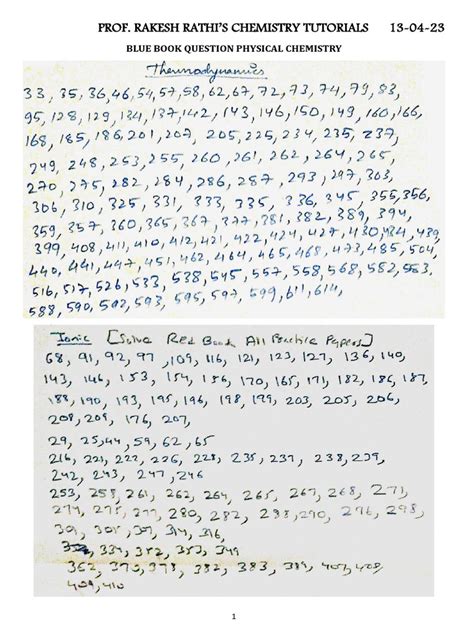 PROF. RAKESH RATHI'S CHEMISTRY TUTORIALS 13-04-23
BLUE BOOK QUESTION PHYSICAL CHEMISTRY
Thermodynamics
33, 35, 36, 46, 54, 57, 58, 62, 67, 72, 73, 74, 79, 83,
95, 128, 129, 134, 137, 142, 143, 146, 150, 149, 160, 166,
168, 185, 186, 201, 207, 205, 225, 234, 235, 237,
249, 248, 253, 255, 260, 261, 262, 264, 265,
270, 275, 282, 284, 286, 287, 293, 297, 303,
306, 310, 325, 331, 333, 335, 336, 345, 355, 356,
359, 357, 360, 365, 367, 377, 381, 382, 389, 394,
399, 408, 411, 410, 412, 421, 422, 424, 427, 430, 434, 439,
440, 441, 447, 451, 462, 464, 465, 468, 473, 485, 504,
516, 517, 526, 533, 538, 545, 557, 558, 568, 582, 583,
588, 590, 592, 593, 595, 597, 599, 611, 614,
Ionic [Solve Red Book All Practice Papers]
68, 91, 92, 97, 109, 116, 121, 123, 127, 136, 140,
143, 146, 153, 154, 156, 170, 165, 171, 182, 186, 187
188, 190, 193, 195, 196, 198, 199, 203, 205, 206
208, 209, 176, 207,
29, 25, 44, 59, 62, 65
216, 221, 222, 226, 228, 235, 237, 238, 239,
242, 243, 247, 246
253, 258, 261, 262, 264, 265, 267, 268, 271,
274, 275, 277, 280, 282, 288, 290, 296, 298,
301, 305, 307, 314, 316,
334, 352, 353, 349
362, 370, 378, 382, 383, 389, 407, 408,
409, 410
1